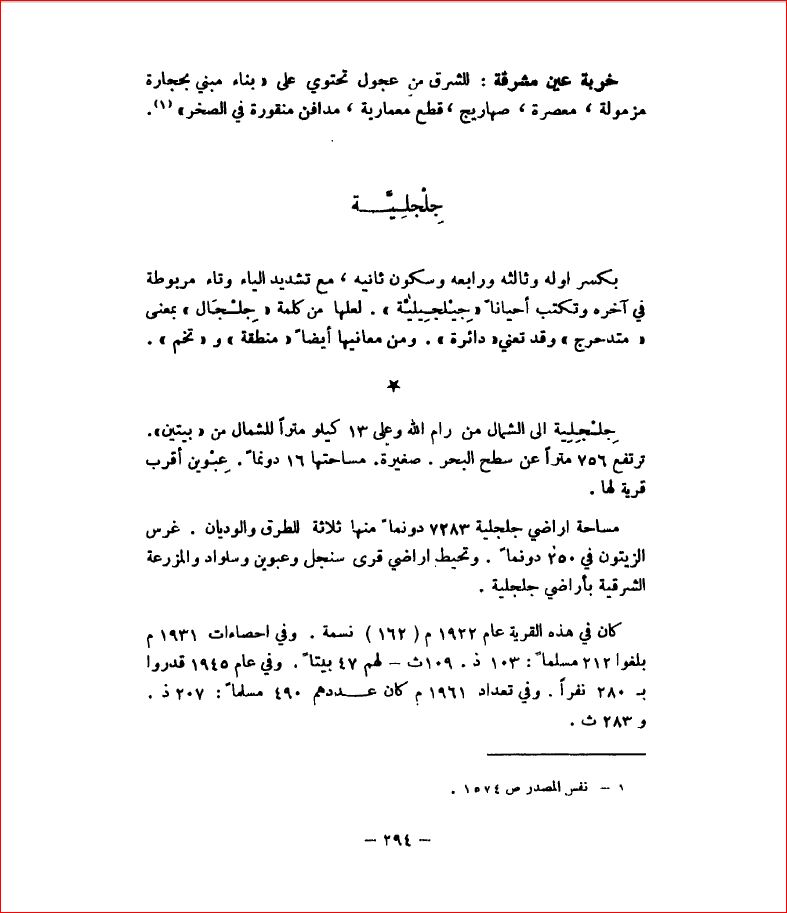 خربة عين مشرقة : للشرق من عجول تحتوي على « بناء مبني بحجارة
مزمولة ، معصرة ، صهاريج ، قطع معمارية ، مدافن منقورة في الصخر » (١).
جِلْجِلِيَّة
بكسر اوله وثالثه ورابعه وسكون ثانيه ، مع تشديد الياء وتاء مربوطة
في آخره وتكتب أحياناً « جِيْلجِيليَّة » . لعلها من كلمة « جِلْجَال » بمعنى
« متدحرج » وقد تعني « دائرة » . ومن معانيها أيضاً « منطقة » و « تخم » .
جِلْجِلِية الى الشمال من رام الله وعلى ١٣ كيلو متراً للشمال من « بيتين ».
ترتفع ٧٥٦ متراً عن سطح البحر . صغيرة. مساحتها ١٦ دونماً . عِبْوين أقرب
قرية لها .
مساحة اراضي جلجلية ٧٢٨٣ دونماً منها ثلاثة للطرق والوديان . غرس
الزيتون في ٢٥٠ دونماً . وتحيط اراضي قرى سنجل وعبوين وسلواد والمزرعة
الشرقية بأراضي جلجلية .
كان في هذه القرية عام ١٩٢٢ م ( ١٦٢ ) نسمة . وفي احصاءات ١٩٣١ م
بلغوا ٢١٢ مسلماً : ١٠٣ ذ . ١٠٩ث – لهم ٤٧ بيتاً . وفي عام ١٩٤٥ قدروا
بـ ٢٨٠ نفراً . وفي تعداد ١٩٦١ م كان عـــددهم ٤٩٠ مسلماً : ٢٠٧ ذ .
و ٢٨٣ ث .
١ – نفس المصدر ص ١٥٧٤ .
– ٢٩٤ –